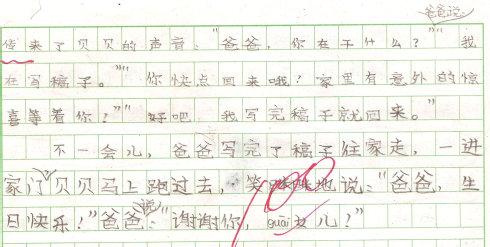 爸爸说:
传来了贝贝的声音:"爸爸,你在干什么?""我
在写稿子。""你快点回来哦!家里有意外的惊
喜等着你!""好吧,我写完稿子就回来。"
不一会儿,爸爸写完了稿子往家走,一进
家门贝贝马上跑过去,笑眯眯地说:"爸爸,生
日快乐!"爸爸说:"谢谢你,guāi女儿!"
100